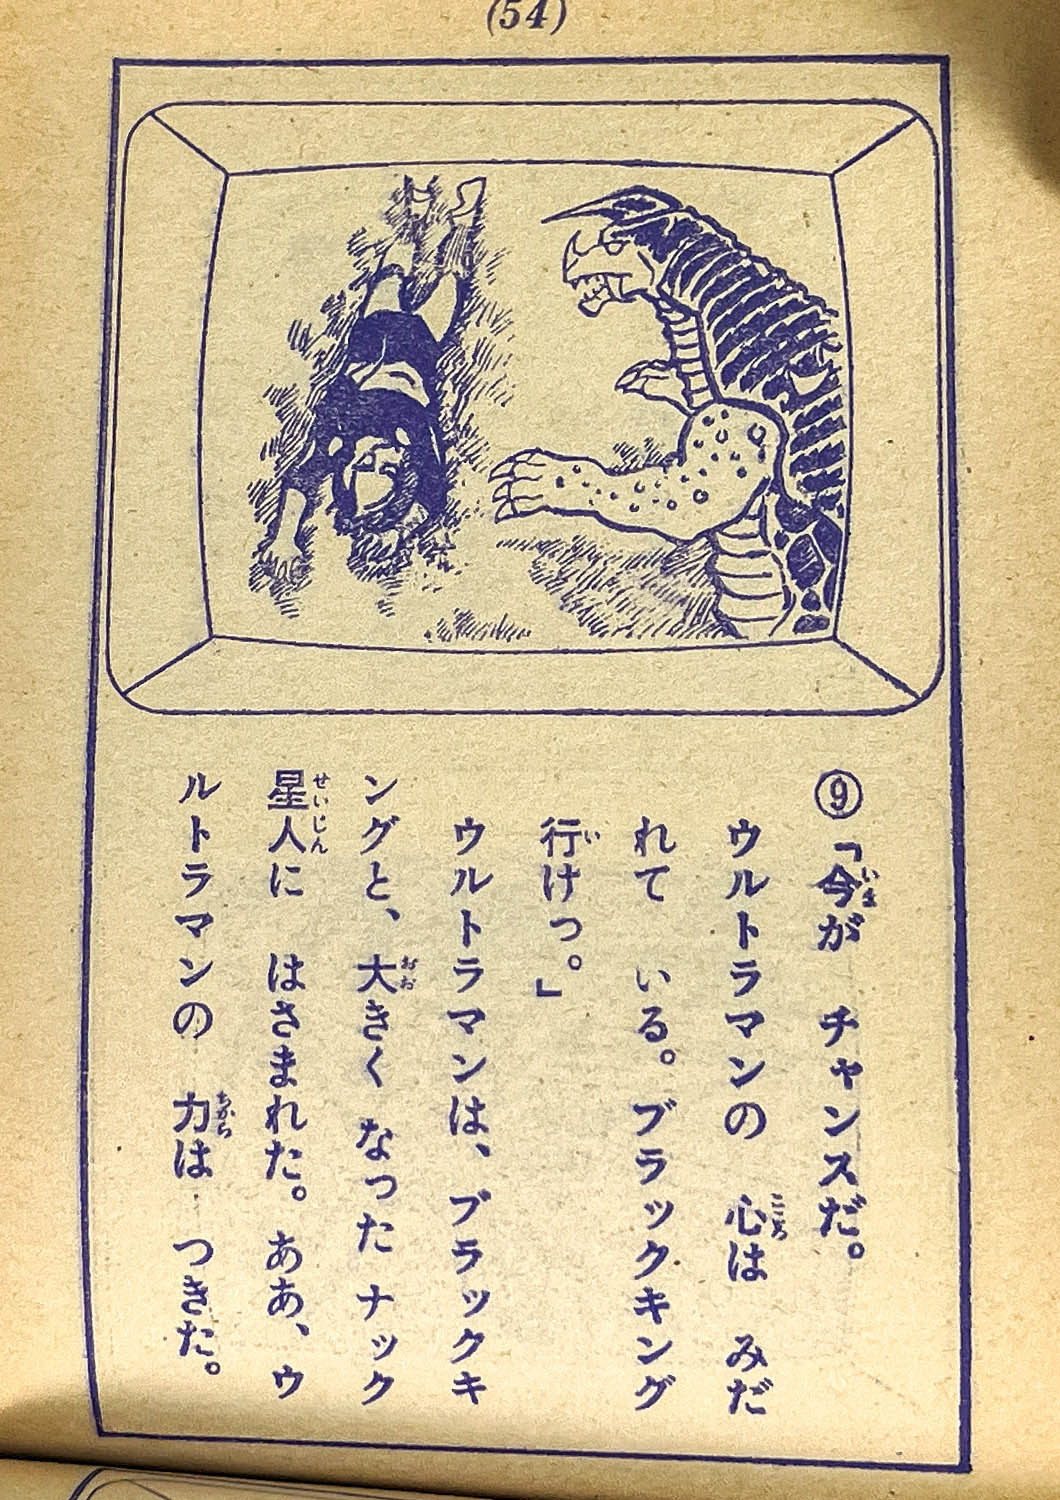 (54)
⑨「今が　チャンスだ。
ウルトラマンの　心は　みだ
れて　いる。ブラックキング
行けっ。」
ウルトラマンは、ブラックキ
ングと、大きく　なった　ナック
星人に　はさまれた。ああ、ウ
ルトラマンの　力は　つきた。